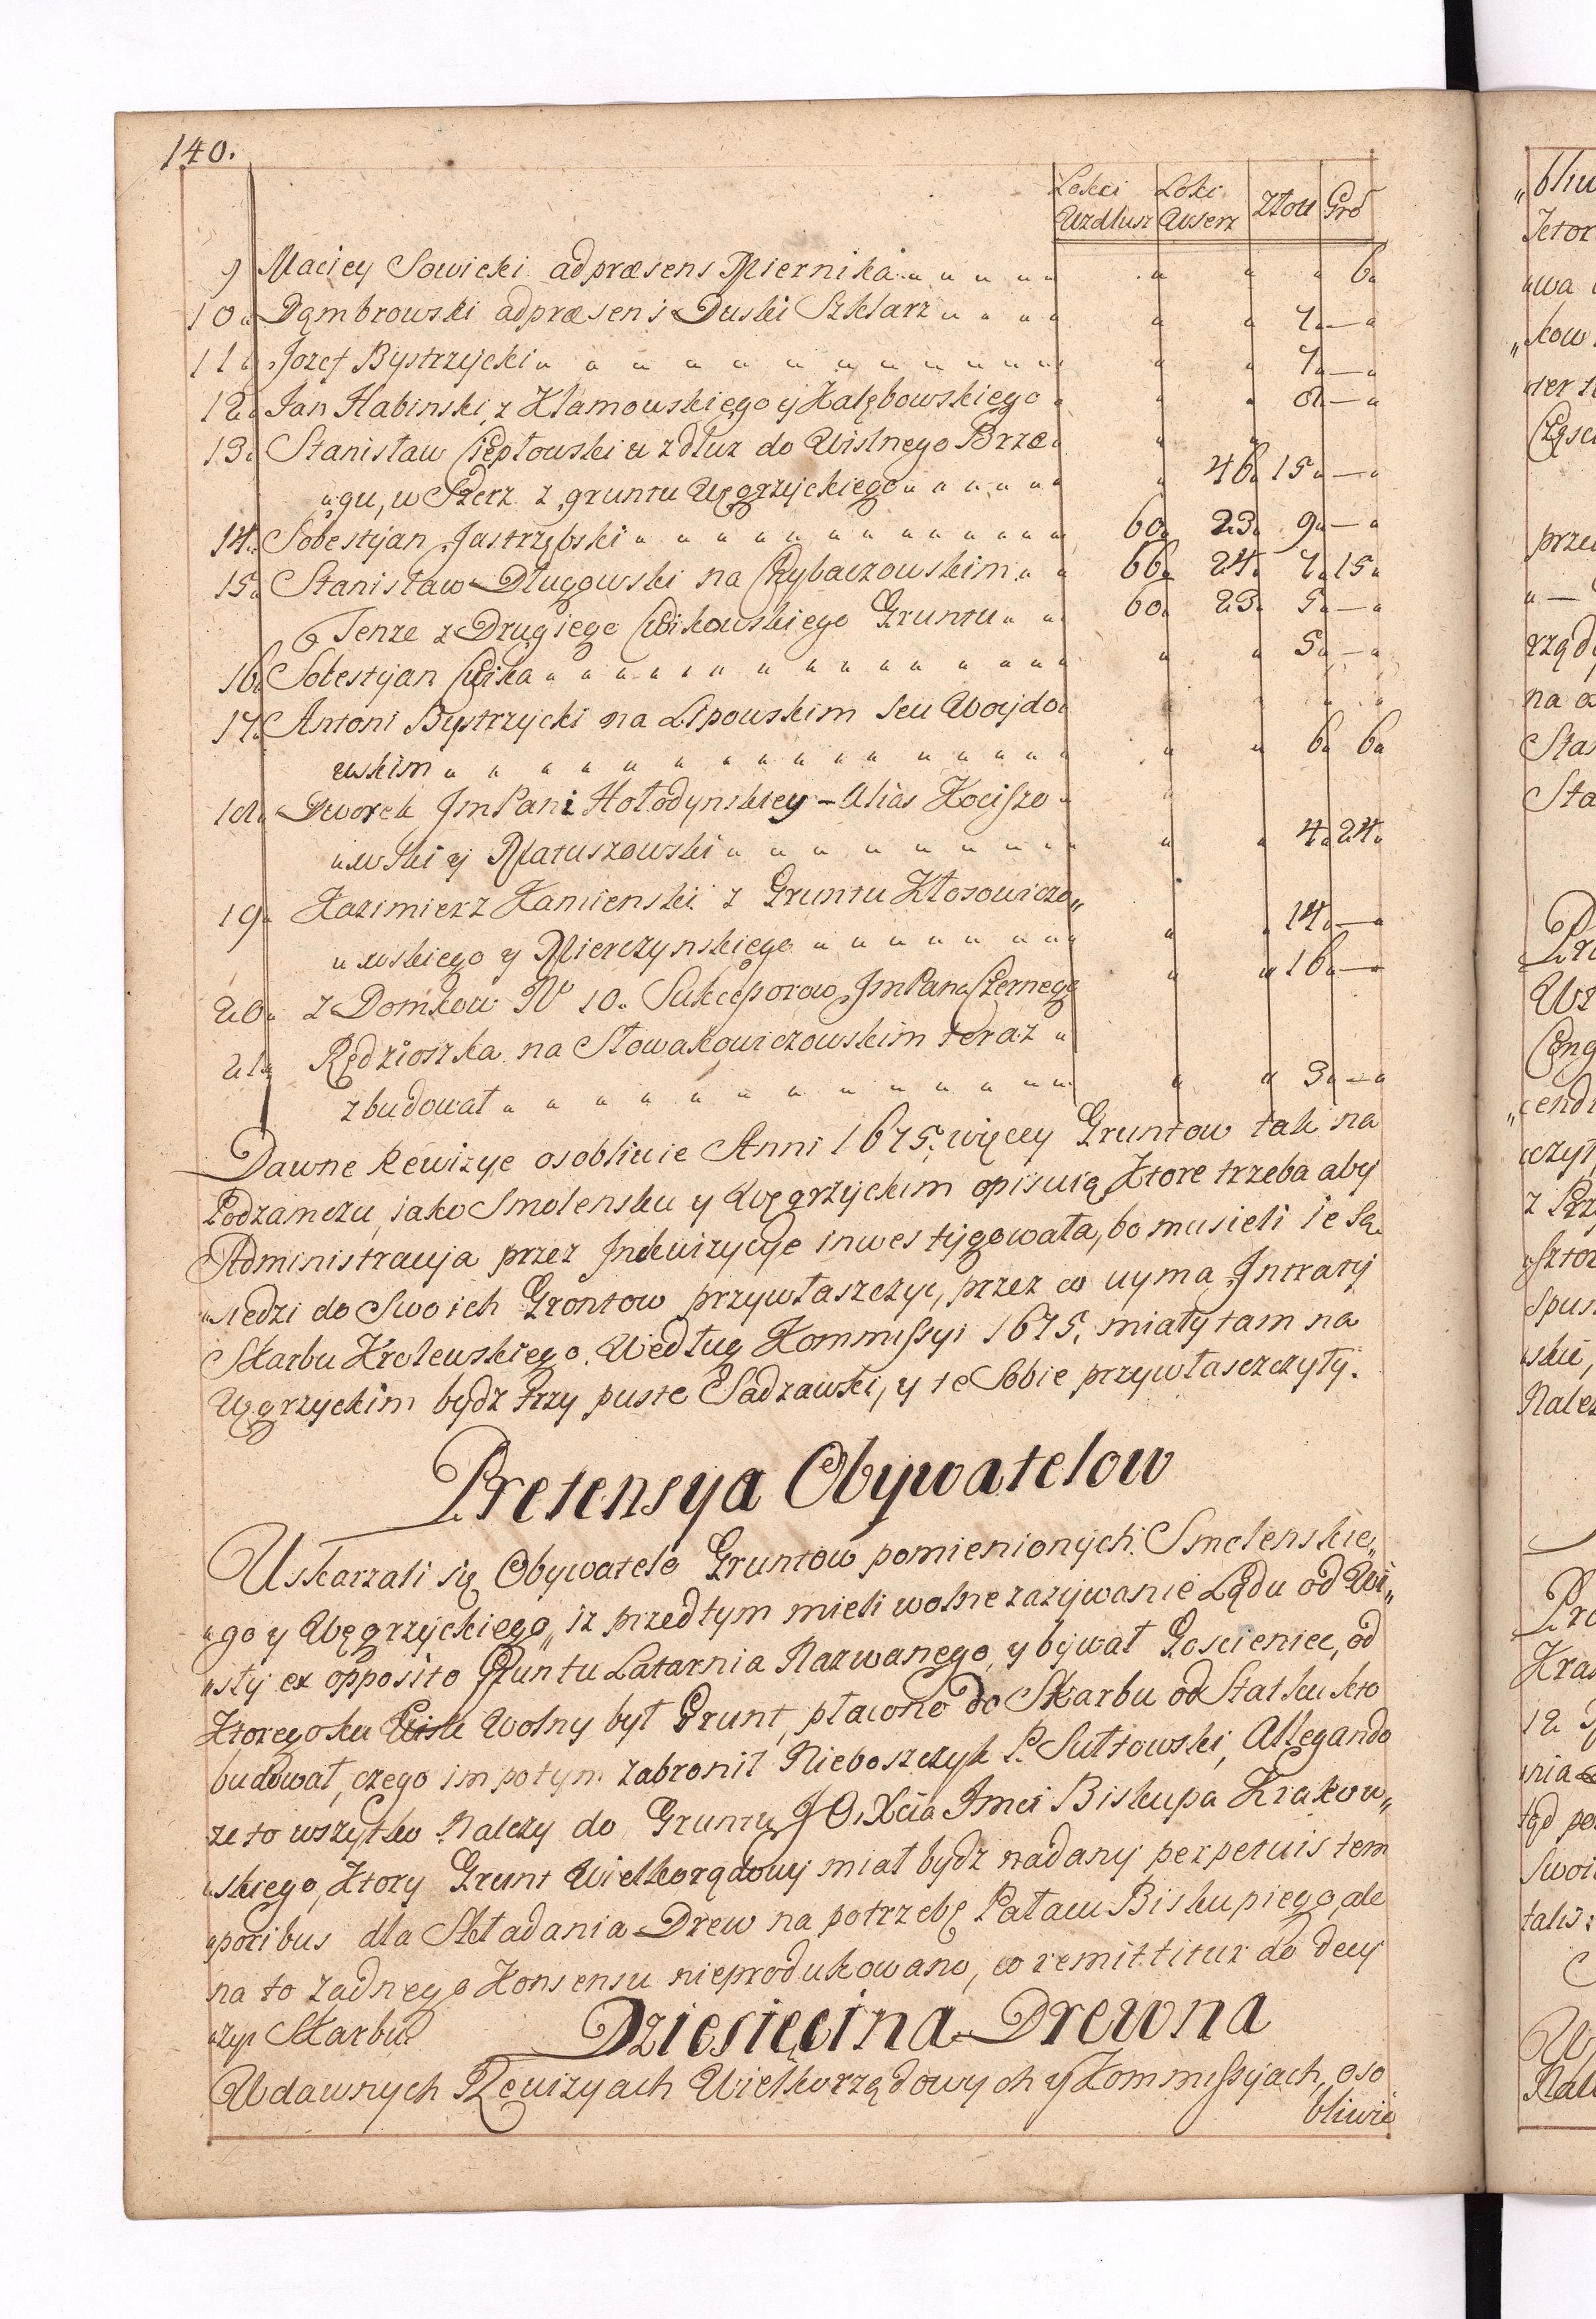 140.
Łokci Łokci Złott Gro
Wzdłusz Wszerz
9 Maciey Sowicki ad præsens Miernika " " " " " 6"
10" Dąmbrowski ad præsens Duski Szklarz " " " " " " 7" — "
11" Jozef Bystrzycki " " " " " " " " " " " " " " 7" — "
12" Jan Habinski z Kłamouskiego y Kałębowskiego " " " 8" — "
13" Stanisław Ciepłouski w zdłuz do Wislnego Brze" " "
"gu, w Szerz z gruntu Węgrzyckiego " " " " " " " 46" 15" — "
14" Sobestyan Jastrzębski " " " " " " " " " " " " 60" 23" 9" — "
15" Stanisław Długowski na Rybaczouskim " " 66" 24" 7" 15"
Tenze z Drugiego Cwikouskiego Gruntu " " 60" 23" 5" — "
16" Sobestyan Cwika " " " " " " " " " " " " " " 5" — "
17" Antoni Bystrzycki na Lipouskim Seu Woydo"
wskim " " " " " " " " " " " " " " " " 6" 6"
18" Dworek JmPani Hołodynskiey – Alias Kocisze "
"wski y Matuszowski " " " " " " " " " " " 4" 24"
19" Kazimierz Kamienski z Gruntu Kłosowiczo"
"wskiego y Mierczynskiego " " " " " " " " " " 14" — "
20" z Domkow No 10" Sukceßorow JmPana Czernego " " 16" — "
21" Rędzioszka na Słowakowiczowskim teraz "
zbudował " " " " " " " " " " " " " " " 3" — "
Dawne Rewizye osobliwie Anni 1675. więcey Gruntow tak na
Podzamczu, iako Smolensku y Węgrzyckim opisuią, Ktore trzeba aby
Administracya przez Jnkwizycye inwestygowała, bo musieli ie Są"
"siedzi do Swoich Grontow przywłaszczyc, przez co uyma Jntraty
Skarbu Krolewskiego. Według Kommißyi 1675. miały tam na
Węgrzyckim bydz trzy puste Sadzawki, y te Sobie przywłaszczyły.
Pretensya Obywatelow
Uskarzali się Obywatele Gruntow pomienionych Smolenskie"
"go y Węgrzyckiego, iz przedtym mieli wolne zazywanie Lądu od Wi"
"sły ex opposito Gruntu Latarnia Nazwanego, y bywał Goscieniec, od
Ktorego ku Wisle Wolny był Grunt, płacono do Skarbu od Statku kto
budował, czego im potym zabronił Nieboszczyk P. Sułkowski, Allegando
ze to wszytko Nalezy do Gruntu JO. Xcia Jmci Biskupa Krakow"
"skiego, Ktory Grunt Wielkorądowy miał bydz nadany perpetuis tem
"poribus dla Składania Drew na potrzebę Pałacu Biskupiego, ale
na to zadnego Konsensu nieprodukowano, co remittitur do decy
"zyi Skarbu.
Dziesięcina Drewna
W dawnych Rewizyach Wielkorządowych y Kommißyjach, oso
bliwie